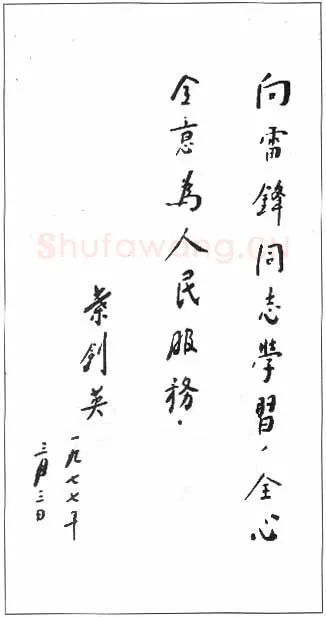 向雷鋒同志學習，全心
全意為人民服務．
葉劍英
一九七七年
三月三日
Shufawang.cn